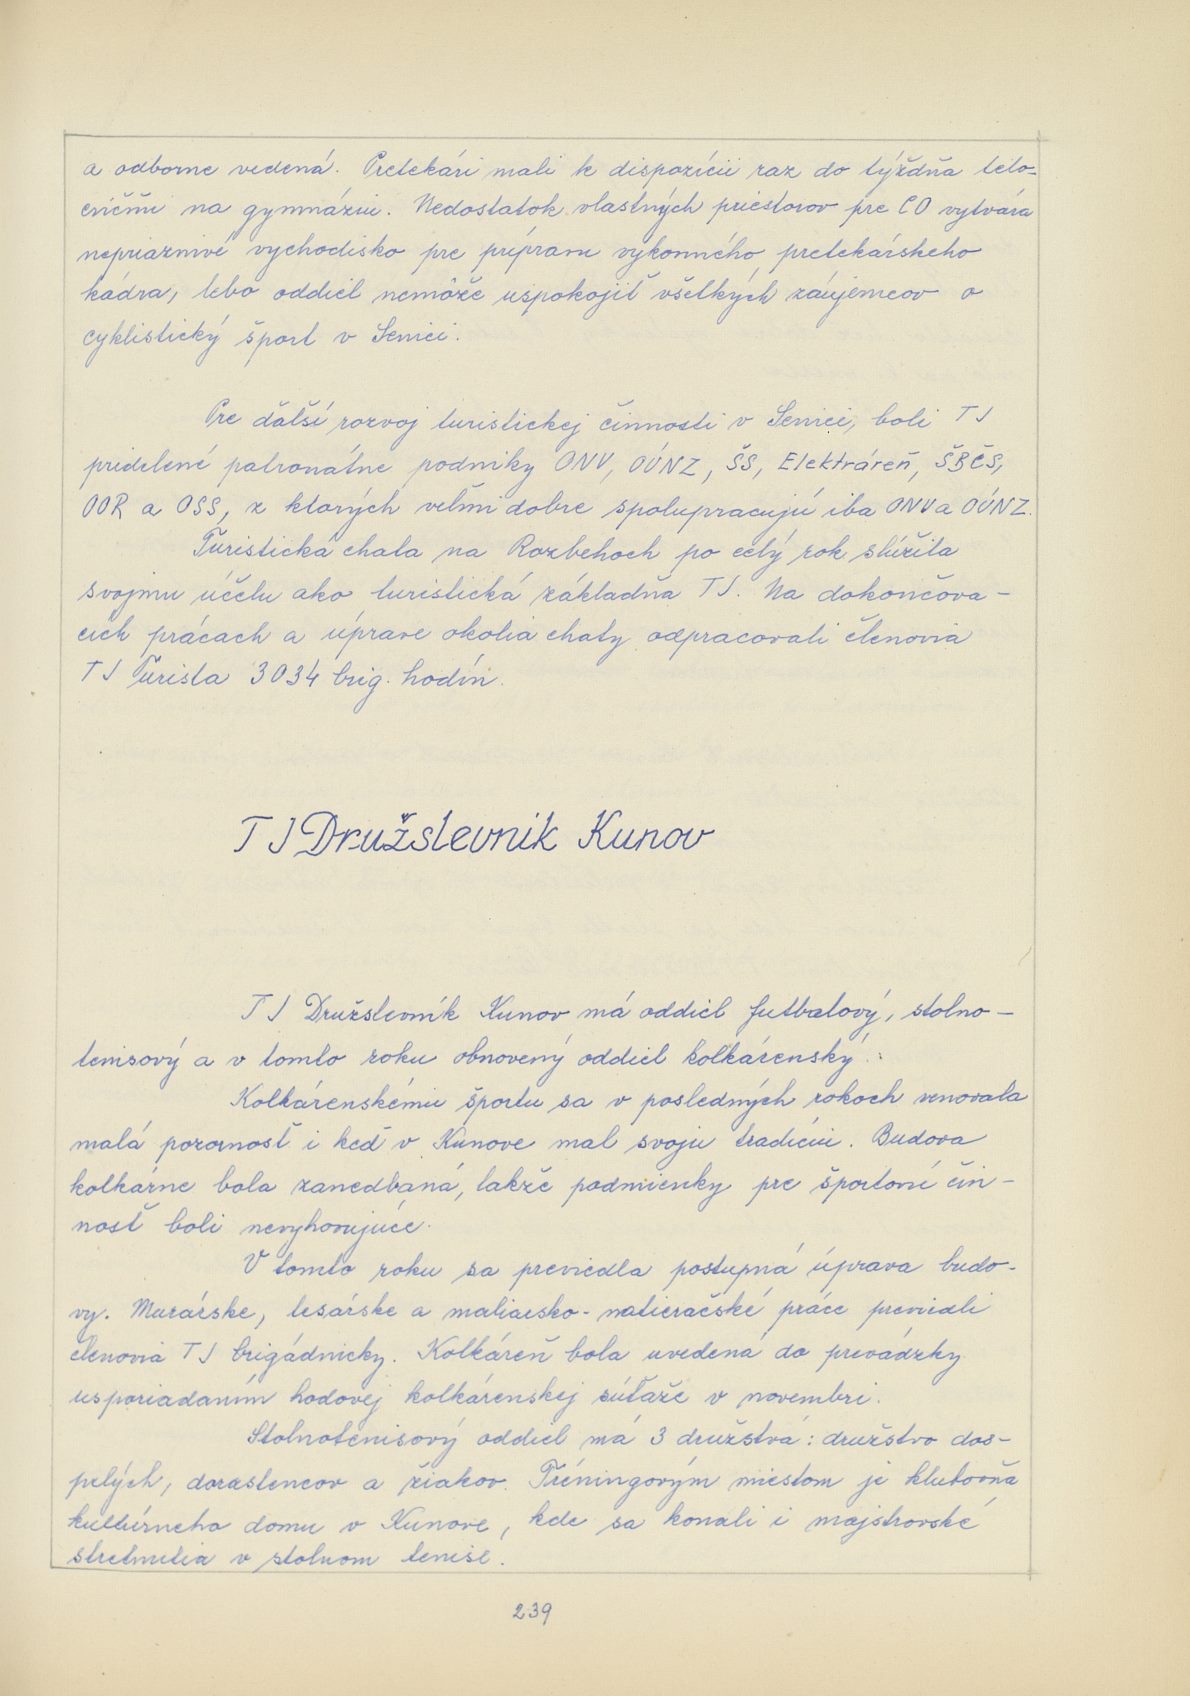 a odborne vedená. Pretekári mali k dispozícii raz do týždňa telo-
cvičňu na gymnáziu. Nedostatok vlastných priestorov pre CO vytvára
nepriaznivé vychodisko pre prípravu výkonného pretekárskeho
kádra, lebo oddiel nemôže uspokojiť všetkých záujemcov o
cyklistický šport v Senici.
Pre ďalší rozvoj turistickej činnosti v Senici, boli TJ
pridelené patronátne podniky ONV, OÚNZ, ŠS, Elektráreň, ŠBČS,
OOR a OSS, z ktorých veľmi dobre spolupracujú iba ONV a OÚNZ.
Turistická chata na Rozbehoch po celý rok slúžila
svojmu účelu ako turistická základňa TJ. Na dokončova-
cích prácach a úprave okolia chaty odpracovali členovia
TJ Turista 3034 brig. hodín.
TJ Družstevník Kunov
TJ Družstevník Kunov má oddiel futbalový, stolno-
tenisový a v tomto roku obnovený oddiel kolkárenský.
Kolkárenskému športu sa v posledných rokoch venovala
malá pozornosť i keď v Kunove mal svoju tradíciu. Budova
kolkárne bola zanedbaná, takže podmienky pre športovú čin-
nosť boli nevyhovujúce.
V tomto roku sa previedla postupná úprava budo-
vy. Murárske, tesárske a maliarsko-natieračské práce previedli
členovia TJ brigádnicky. Kolkáreň bola uvedená do prevádzky
usporiadaním hodovej kolkárenskej súťaže v novembri.
Stolnotenisový oddiel má 3 družstvá: družstvo dos-
pelých, dorastencov a žiakov. Tréningovým miestom je klubovňa
kultúrneho domu v Kunove, kde sa konali i majstrovské
stretnutia v stolnom tenise.
239